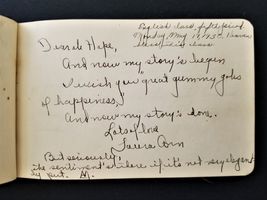 English class, fifth period
Monday, May 17, 1937.
Derrah Hepe,
And now my story's begun
I wish you "great gummy gobs
of happiness,"
And now my story's done.
Lots of love
Laura Orn
But seriously,
the sentiment's there if it's not very elegant
ly put.